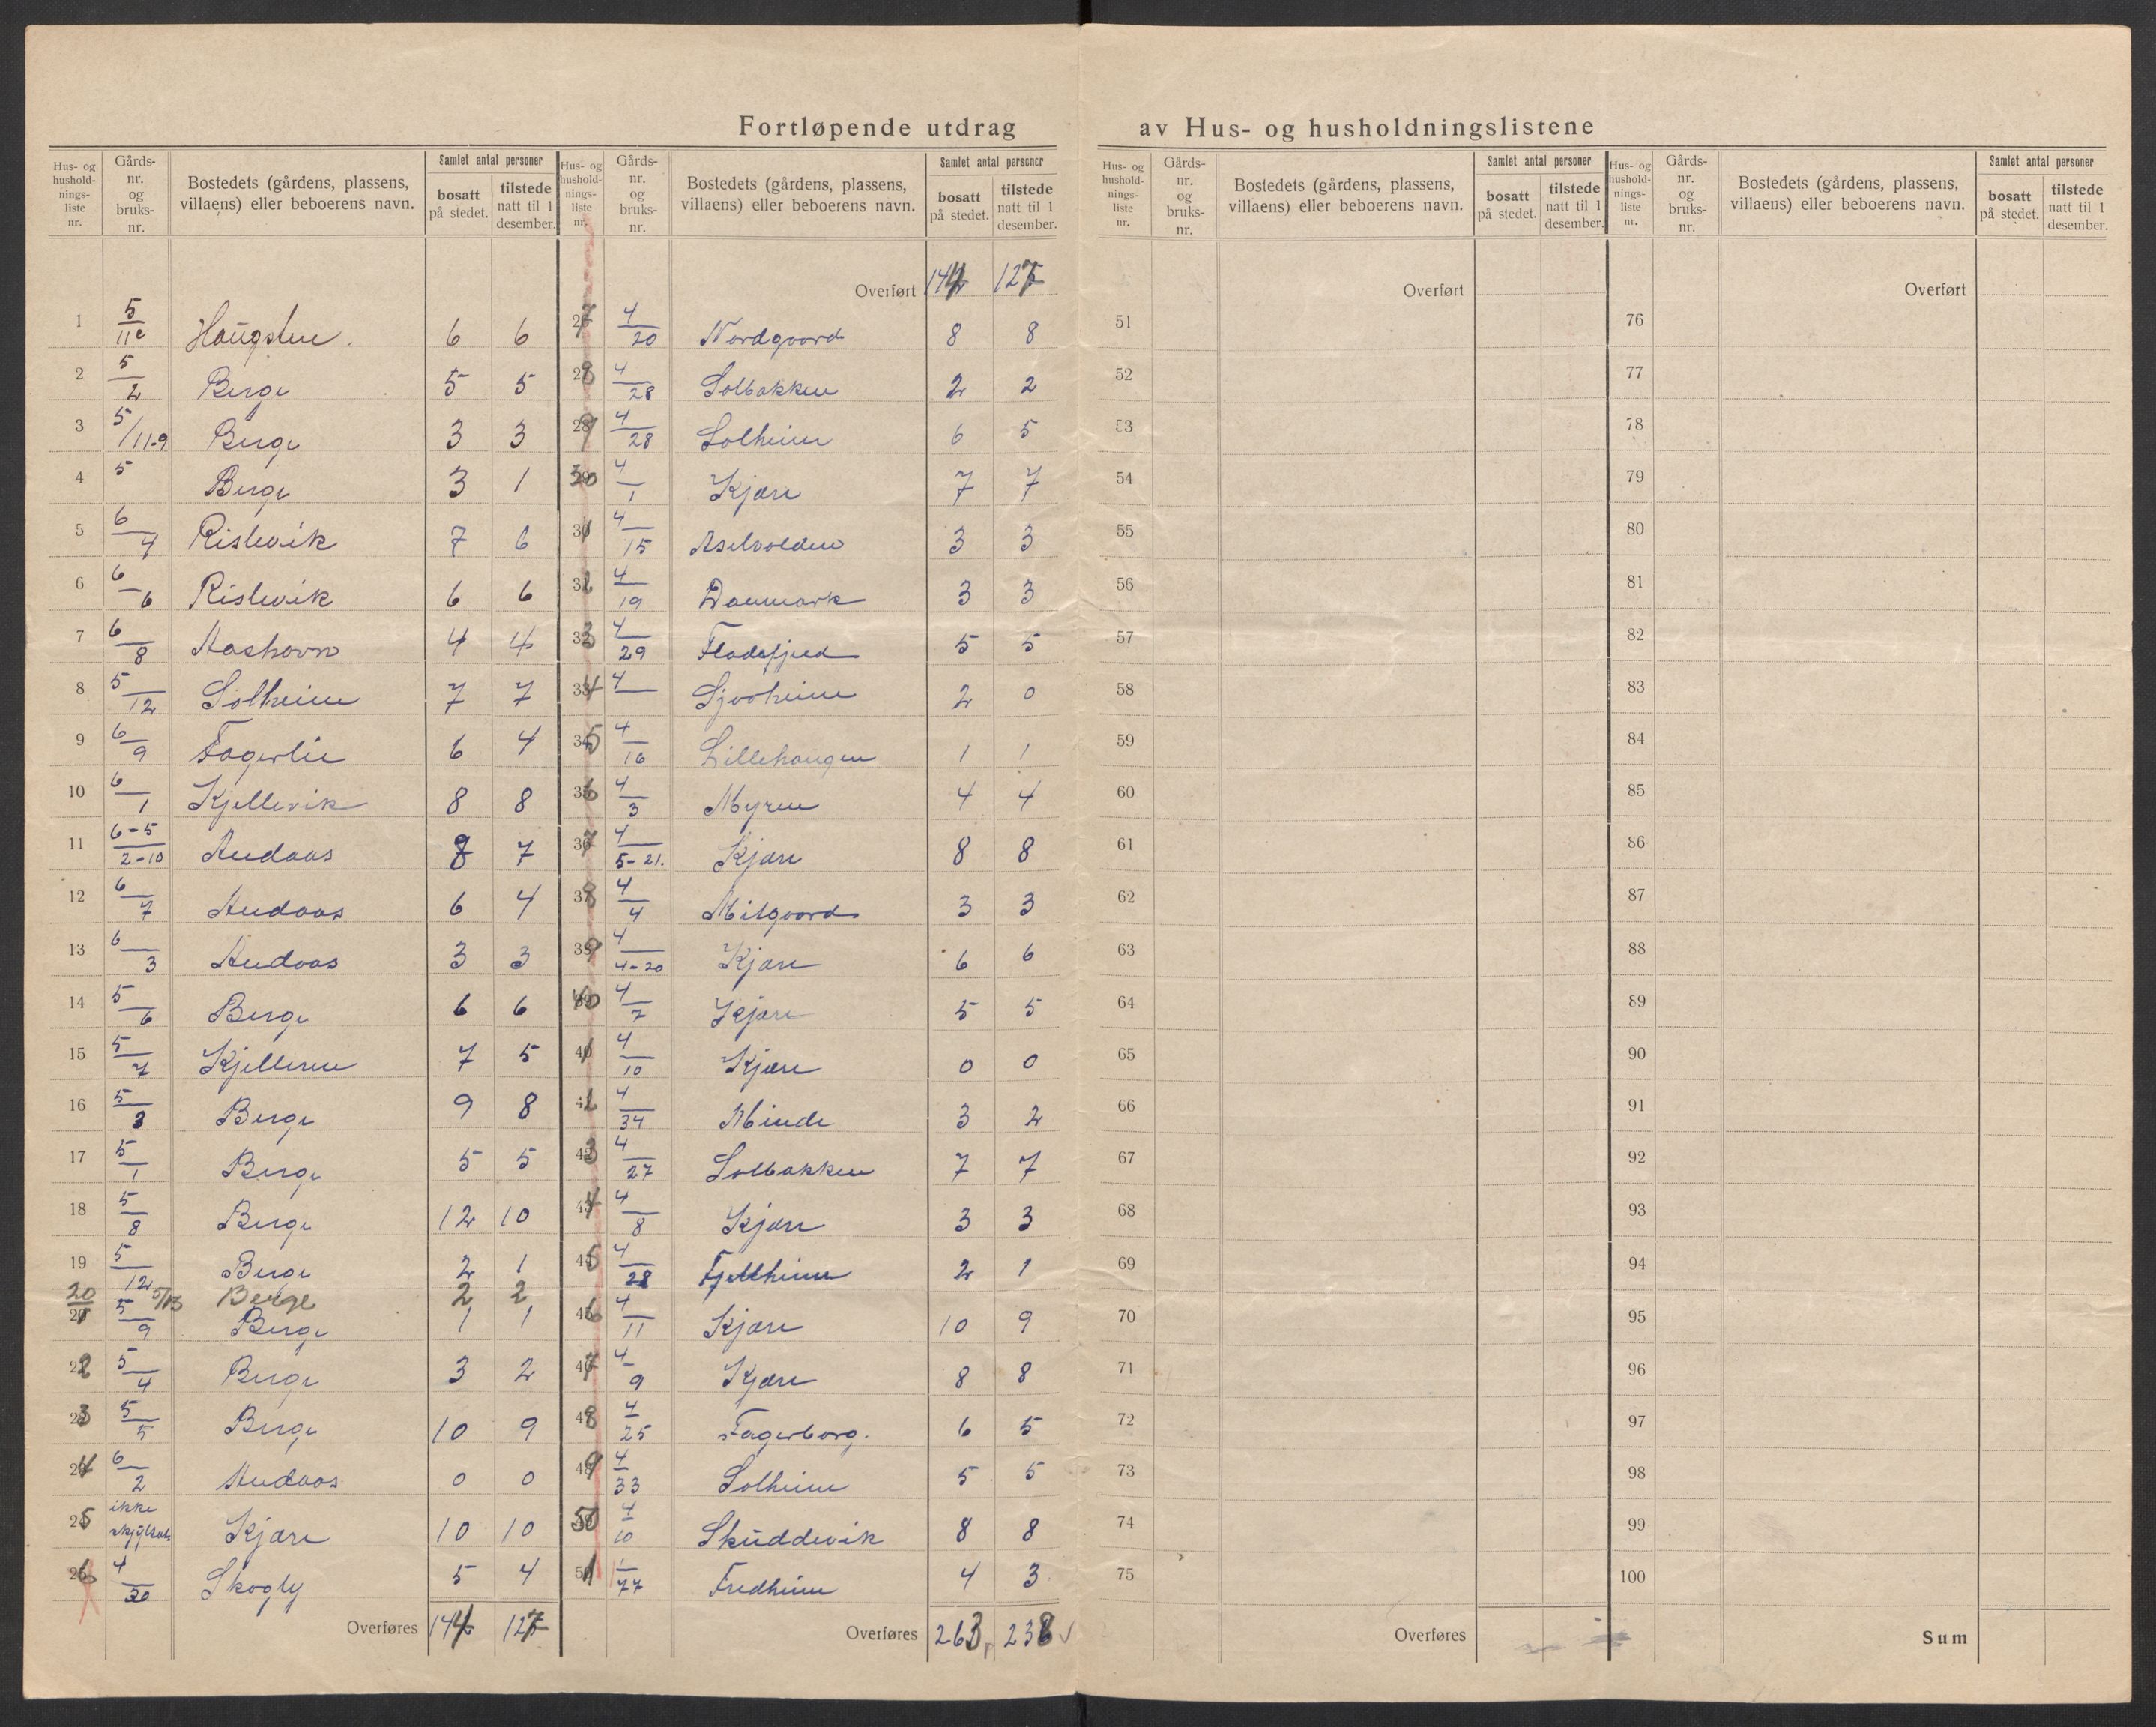 Fortløpende utdrag av Hus- og husholdningslistene
Hus- og hushold-nings-liste nr. | Gårds-nr. og bruks-nr. | Bostedets (gårdens, plassens, villaens) eller beboerens navn. | Samlet antal personer | bosatt på stedet. | tilstede natt til 1 desember.
1 5/11c Haugsten. 6 6
2 5/2 Berge 5 5
3 5/11-9 Berge 3 3
4 5 Berge 3 1
5 6/4 Rislevik 7 6
6 6/6 Rislevik 6 6
7 6/8 Aashavn 4 4
8 5/12 Solheim 7 7
9 6/9 Fagerlie 6 4
10 6/1 Kjellevik 8 8
11 6-5/2-10 Audaas 8 7
12 6/7 Audaas 6 4
13 6/3 Audaas 3 3
14 5/6 Berge 6 6
15 5/7 Kjelleren 7 5
16 5/3 Berge 9 8
17 5/1 Berge 5 5
18 5/8 Berge 12 10
19 5/12 Berge 2 1
20 5/13 Berge 2 2
21 5/9 Berge 1 1
22 5/4 Berge 3 2
23 5/5 Berge 10 9
24 6/2 Audaas 0 0
25 ikke Kjære 10 10
26 4/30 Skogly 5 4
Overføres 144 127
Hus- og hushold-nings-liste nr. | Gårds-nr. og bruks-nr. | Bostedets (gårdens, plassens, villaens) eller beboerens navn. | Samlet antal personer | bosatt på stedet. | tilstede natt til 1 desember.
Overført 144 127
27 4/20 Nordgaard 8 8
28 4/28 Solbakken 2 2
29 4/28 Solheim 6 5
30 4/1 Kjære 7 7
31 4/15 3 3
32 4/19 Danmark 3 3
33 4/29 Fladefjeld 5 5
34 4 Sjøoheim 2 0
35 4/16 Lillehaugen 1 1
36 4/3 Myren 4 4
37 4/5-21. Kjære 8 8
38 4/4 Mitgaard 3 3
39 4/4-20 Kjære 6 6
40 4/7 Kjære 5 5
41 4/10 Kjære 0 0
42 4/34 Minde 3 2
43 4/27 Solbakken 7 7
44 4/8 Kjære 3 3
45 4/28 Fjellheim 2 1
46 4/11 Kjære 10 9
47 4/9 Kjære 8 8
48 4/25 Fagerborg. 6 5
49 4/33 Solheim 5 5
50 4/10 Skuddevik 8 8
51 1/77 Fredheim 4 3
Overføres 263 238
Hus- og hushold-nings-liste nr. | Gårds-nr. og bruks-nr. | Bostedets (gårdens, plassens, villaens) eller beboerens navn. | Samlet antal personer | bosatt på stedet. | tilstede natt til 1 desember.
Overført
51
52
53
54
55
56
57
58
59
60
61
62
63
64
65
66
67
68
69
70
71
72
73
74
75
Overføres
Hus- og hushold-nings-liste nr. | Gårds-nr. og bruks-nr. | Bostedets (gårdens, plassens, villaens) eller beboerens navn. | Samlet antal personer | bosatt på stedet. | tilstede natt til 1 desember.
Overført
76
77
78
79
80
81
82
83
84
85
86
87
88
89
90
91
92
93
94
95
96
97
98
99
100
Sum